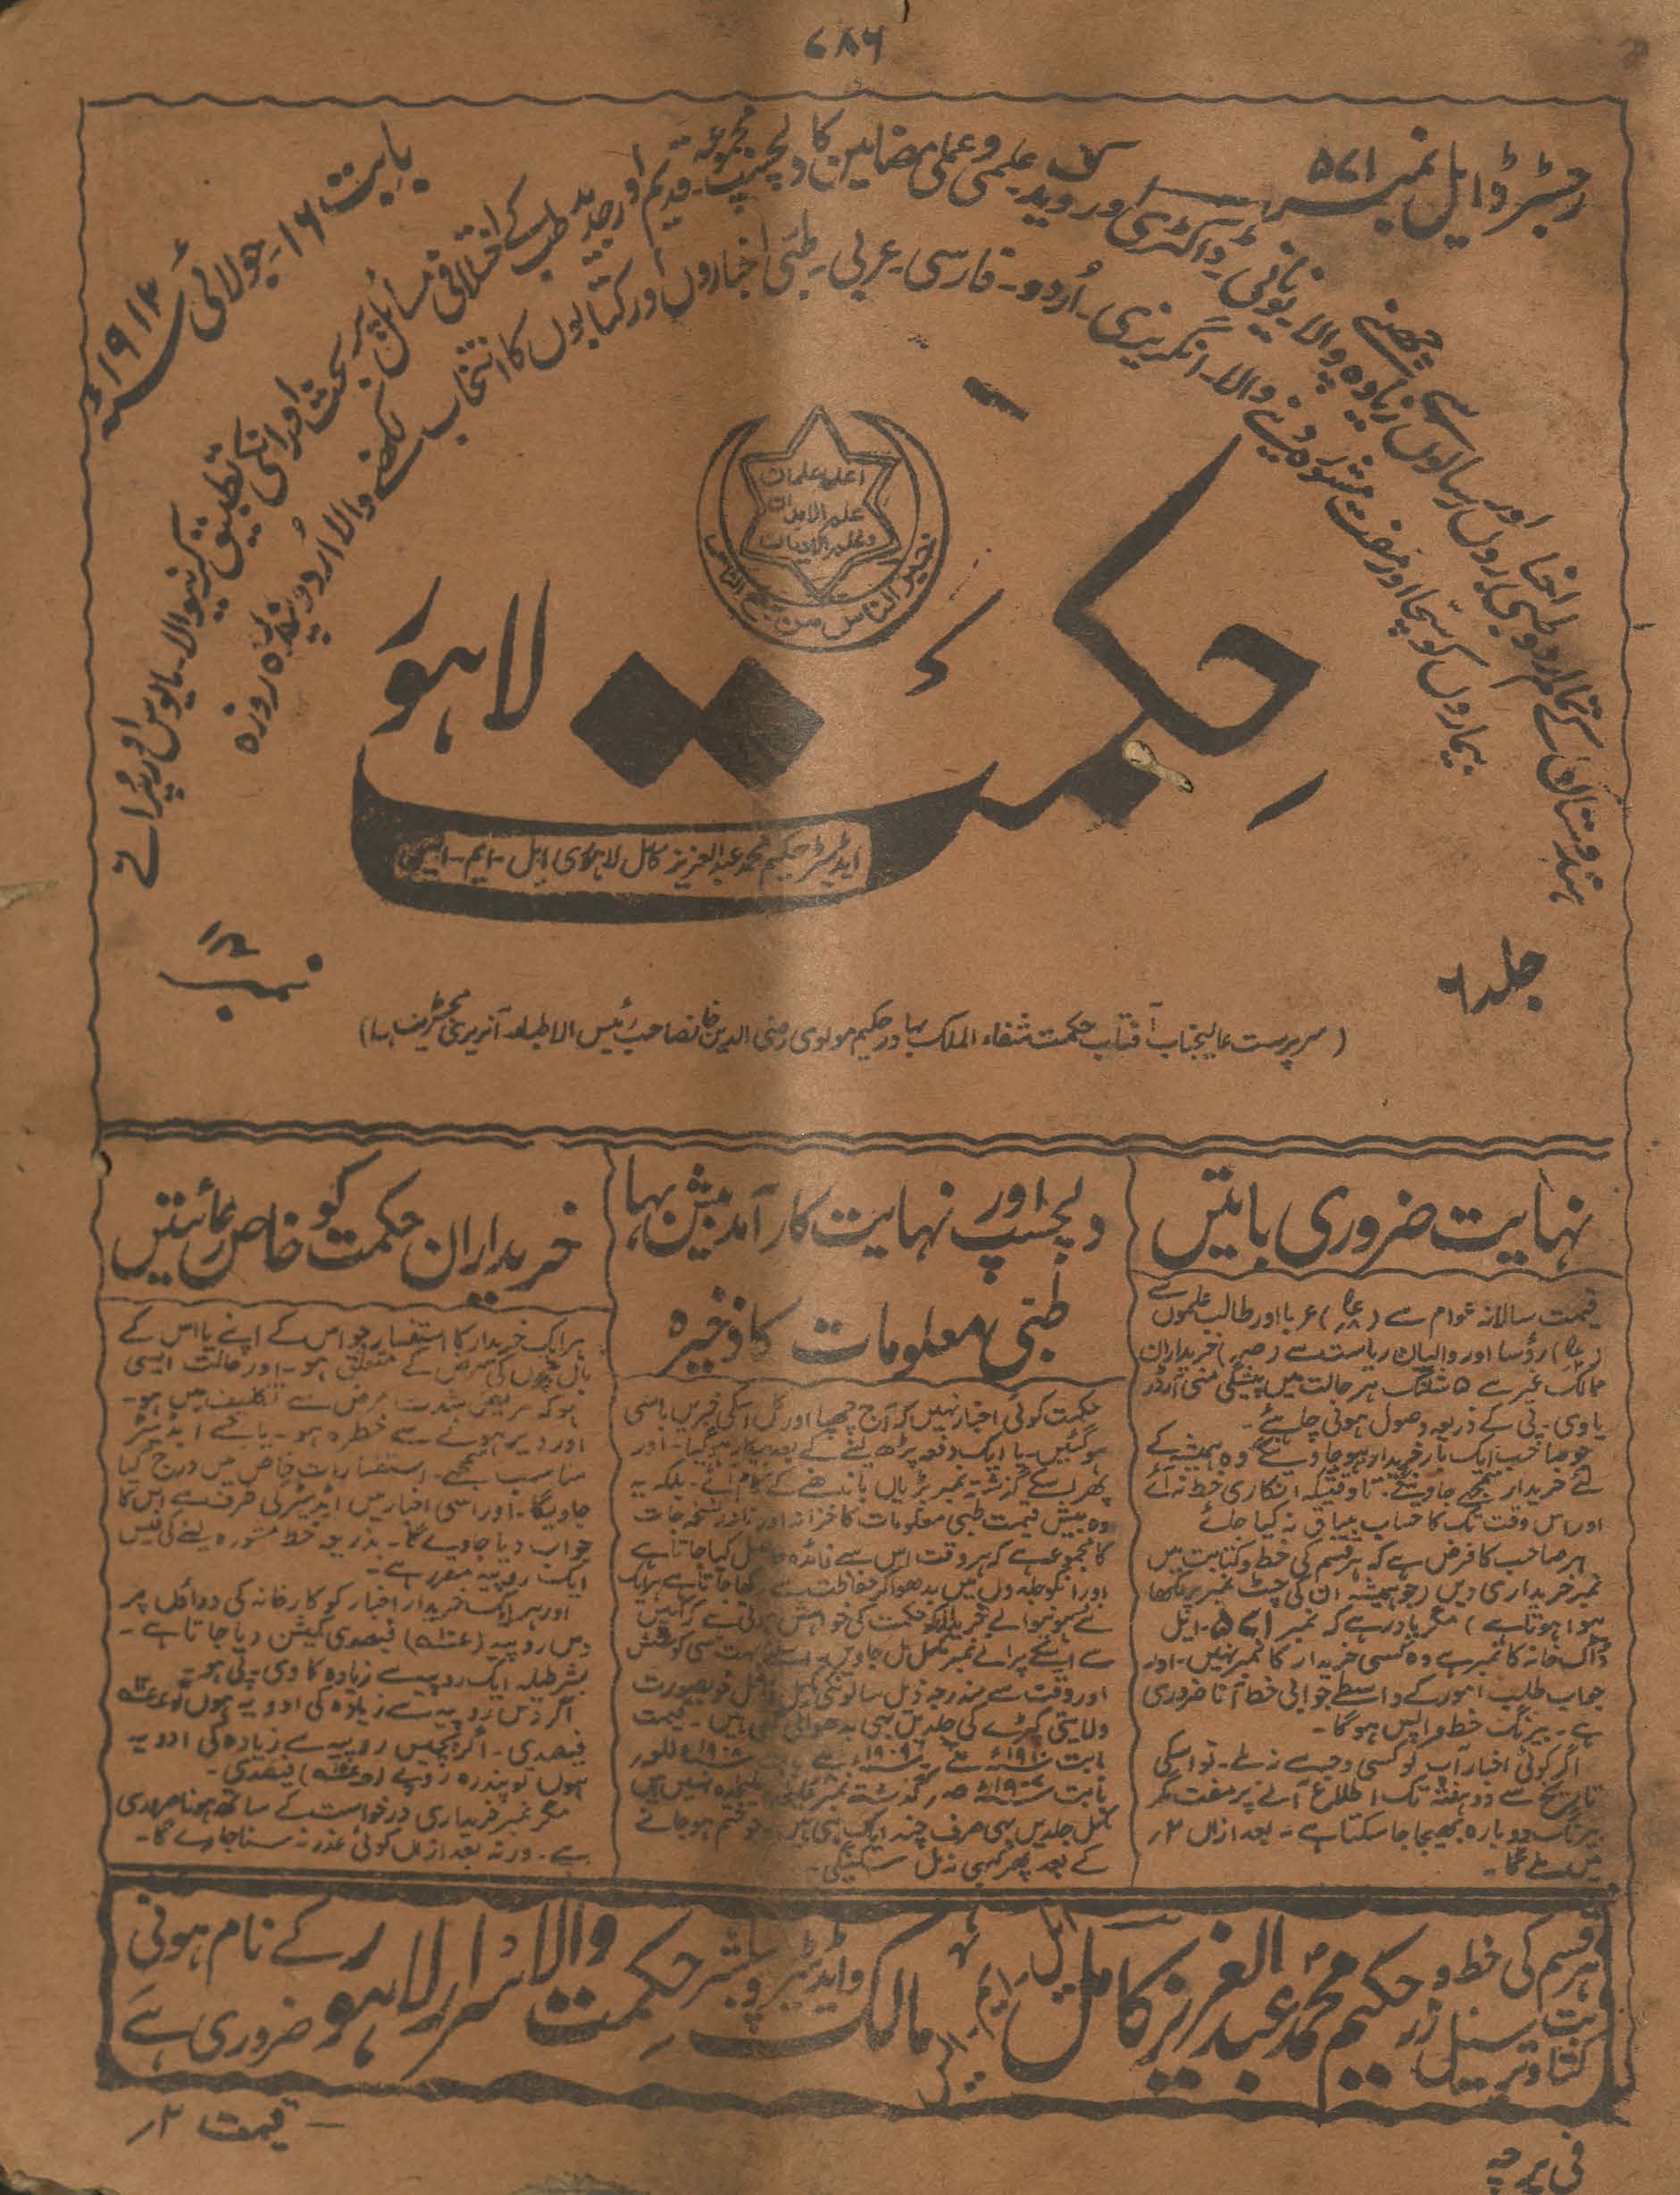 ۷۸۶
رجسٹرڈ ایل نمبر ۵۷۱
بابت ۱۶۔ جولائی ۱۹۱۴ء
ہندوستان کے تمام اردو طبی اخباروں اور رسالوں سے زیادہ چھپنے والا یونانی۔ ڈاکٹری اور ویدک علمی و عملی مضامین کا دلچسپ مجموعہ۔ قدیم اور جدید طب کے اختلافی مسائل پر بحث اور انکی تطبیق کرنیوالا۔ مایوس اور پرانے
بیماروں کو سچا اور مفت مشورہ دینے والا۔ انگریزی۔ اُردو۔ فارسی۔ عربی۔ طبّی اخباروں اور کتابوں کا انتخاب لکھنے والا اُردو پندرہ روزہ
خیر الناس من ینفع الناس
العلم علمان
علم الابدان
وعلم الادیان
حکمت لاہور
ایڈیٹر حکیم محمد عبدالعزیز کامل لاہوری ایل۔ ایم۔ ایس
جلد ۶
نمبر
(سرپرست عالیجناب آفتاب حکمت شفاء الملک بہادر حکیم مولوی رضی الدین خانصاحب رئیس الاطباء آنریری مجسٹریٹ
نہایت ضروری باتیں
قیمت سالانہ عوام سے غربا اور طالب علموں سے
رؤسا اور والیان ریاست سے خریداران
ممالک غیر سے ۵ شلنگ ہر حالت میں پیشگی منی آرڈر
یا وی۔ پی کے ذریعہ وصول ہونی چاہئے۔
جو صاحب ایک بار خریدار ہو جاوینگے وہ ہمیشہ کے
لئے خریدار سمجھے جاوینگے۔ تاوقتیکہ انکاری خط نہ آئے
اور اس وقت تک کا حساب بیباق نہ کیا جائے
ہر صاحب کا فرض ہے کہ ہر قسم کی خط و کتابت میں
نمبر خریداری دیں (جو ہمیشہ ان کی چٹ نمبر پر لکھا
ہوا ہوتا ہے) مگر یاد رہے کہ نمبر ۵۷۱۔ ایل
ڈاک خانہ کا نمبر ہے وہ کسی خریدار کا نمبر نہیں۔ اور
جواب طلب امور کے واسطے جوابی خط آنا ضروری
ہے۔ بیرنگ خط واپس ہوگا۔
اگر کوئی اخبار آپ کو کسی وجہ سے نہ ملے۔ تو اسکی
تاریخ سے دو ہفتہ تک اطلاع آنے پر مفت مگر
بیرنگ دوبارہ بھیجا جا سکتا ہے۔ بعد ازاں ۲؍
میں ملے گا۔
دلچسپ اور نہایت کارآمد بیش بہا
طبّی معلومات کا ذخیرہ
حکمت کوئی اخبار نہیں کہ آج چھپا اور کل اسکی خبریں باسی
ہو گئیں۔ یا ایک دفعہ پڑھ لینے کے بعد بیکار ہو گیا۔ اور
پھر اسے گزشتہ نمبر پڑیاں باندھنے کے کام آئے۔ بلکہ یہ
وہ بیش قیمت طبی معلومات کا خزانہ اور نادر نسخہ جات
کا مجموعہ ہے کہ ہر وقت اس سے فائدہ حاصل کیا جاتا ہے
اور انکو جلدوں میں بندھوا کر حفاظت سے رکھا جاتا ہے ہر ایک
نئے ہونیوالے خریدار کو حکمت کی خواہش ہوتی ہے کہ کہیں
سے اسکے پرانے نمبر مکمل مل جاویں۔ اسلئے بہت سی کوشش
اور وقت سے مندرجہ ذیل سالونکی مکمل فائل خوبصورت
ولایتی کپڑے کی جلد میں بھی بندھوائی گئی ہیں۔ قیمت
مکمل جلدیں بھی صرف چند ایک ہی ہیں۔ جو ختم ہو جانے
کے بعد پھر کبھی نہ مل سکینگی۔
خریداران حکمت کو خاص رعائتیں
ہر ایک خریدار کا استفسار جو اس کے اپنے یا اس کے
بال بچوں کی مرض کے متعلق ہو۔ اور حالت ایسی
ہو کہ مریض شدت مرض سے تکلیف میں ہو۔
اور دیر ہونے سے خطرہ ہو۔ یا جسے ایڈیٹر
مناسب سمجھے۔ استفسارات خاص میں درج کیا
جاویگا۔ اور اسی اخبار میں ایڈیٹر کی طرف سے اس کا
جواب دیا جاوے گا۔ بذریعہ خط مشورہ لینے کی فیس
ایک روپیہ مقرر ہے۔
اور ہر ایک خریدار اخبار کو کارخانہ کی دوائوں پر
دس روپیہ فیصدی کمیشن دیا جاتا ہے۔
بشرطیکہ ایک روپیہ سے زیادہ کا وی۔ پی ہو۔
اگر دس روپیہ سے زیادہ کی ادویہ ہوں تو
فیصدی۔ اگر پچیس روپیہ سے زیادہ کی ادویہ
ہوں تو پندرہ روپے فیصدی۔
مگر نمبر خریداری درخواست کے ساتھ ہونا ضروری
ہے۔ ورنہ بعد ازاں کوئی عذر نہ سنا جاوے گا۔
ہر قسم کی خط و کتابت و ترسیل زر حکیم محمد عبدالعزیز کامل ایل۔ ایم۔ ایس مالک و ایڈیٹر و پبلشر حکمت والاسرار لاہور کے نام ہونی ضروری ہے
فی پرچہ
قیمت ۲؍